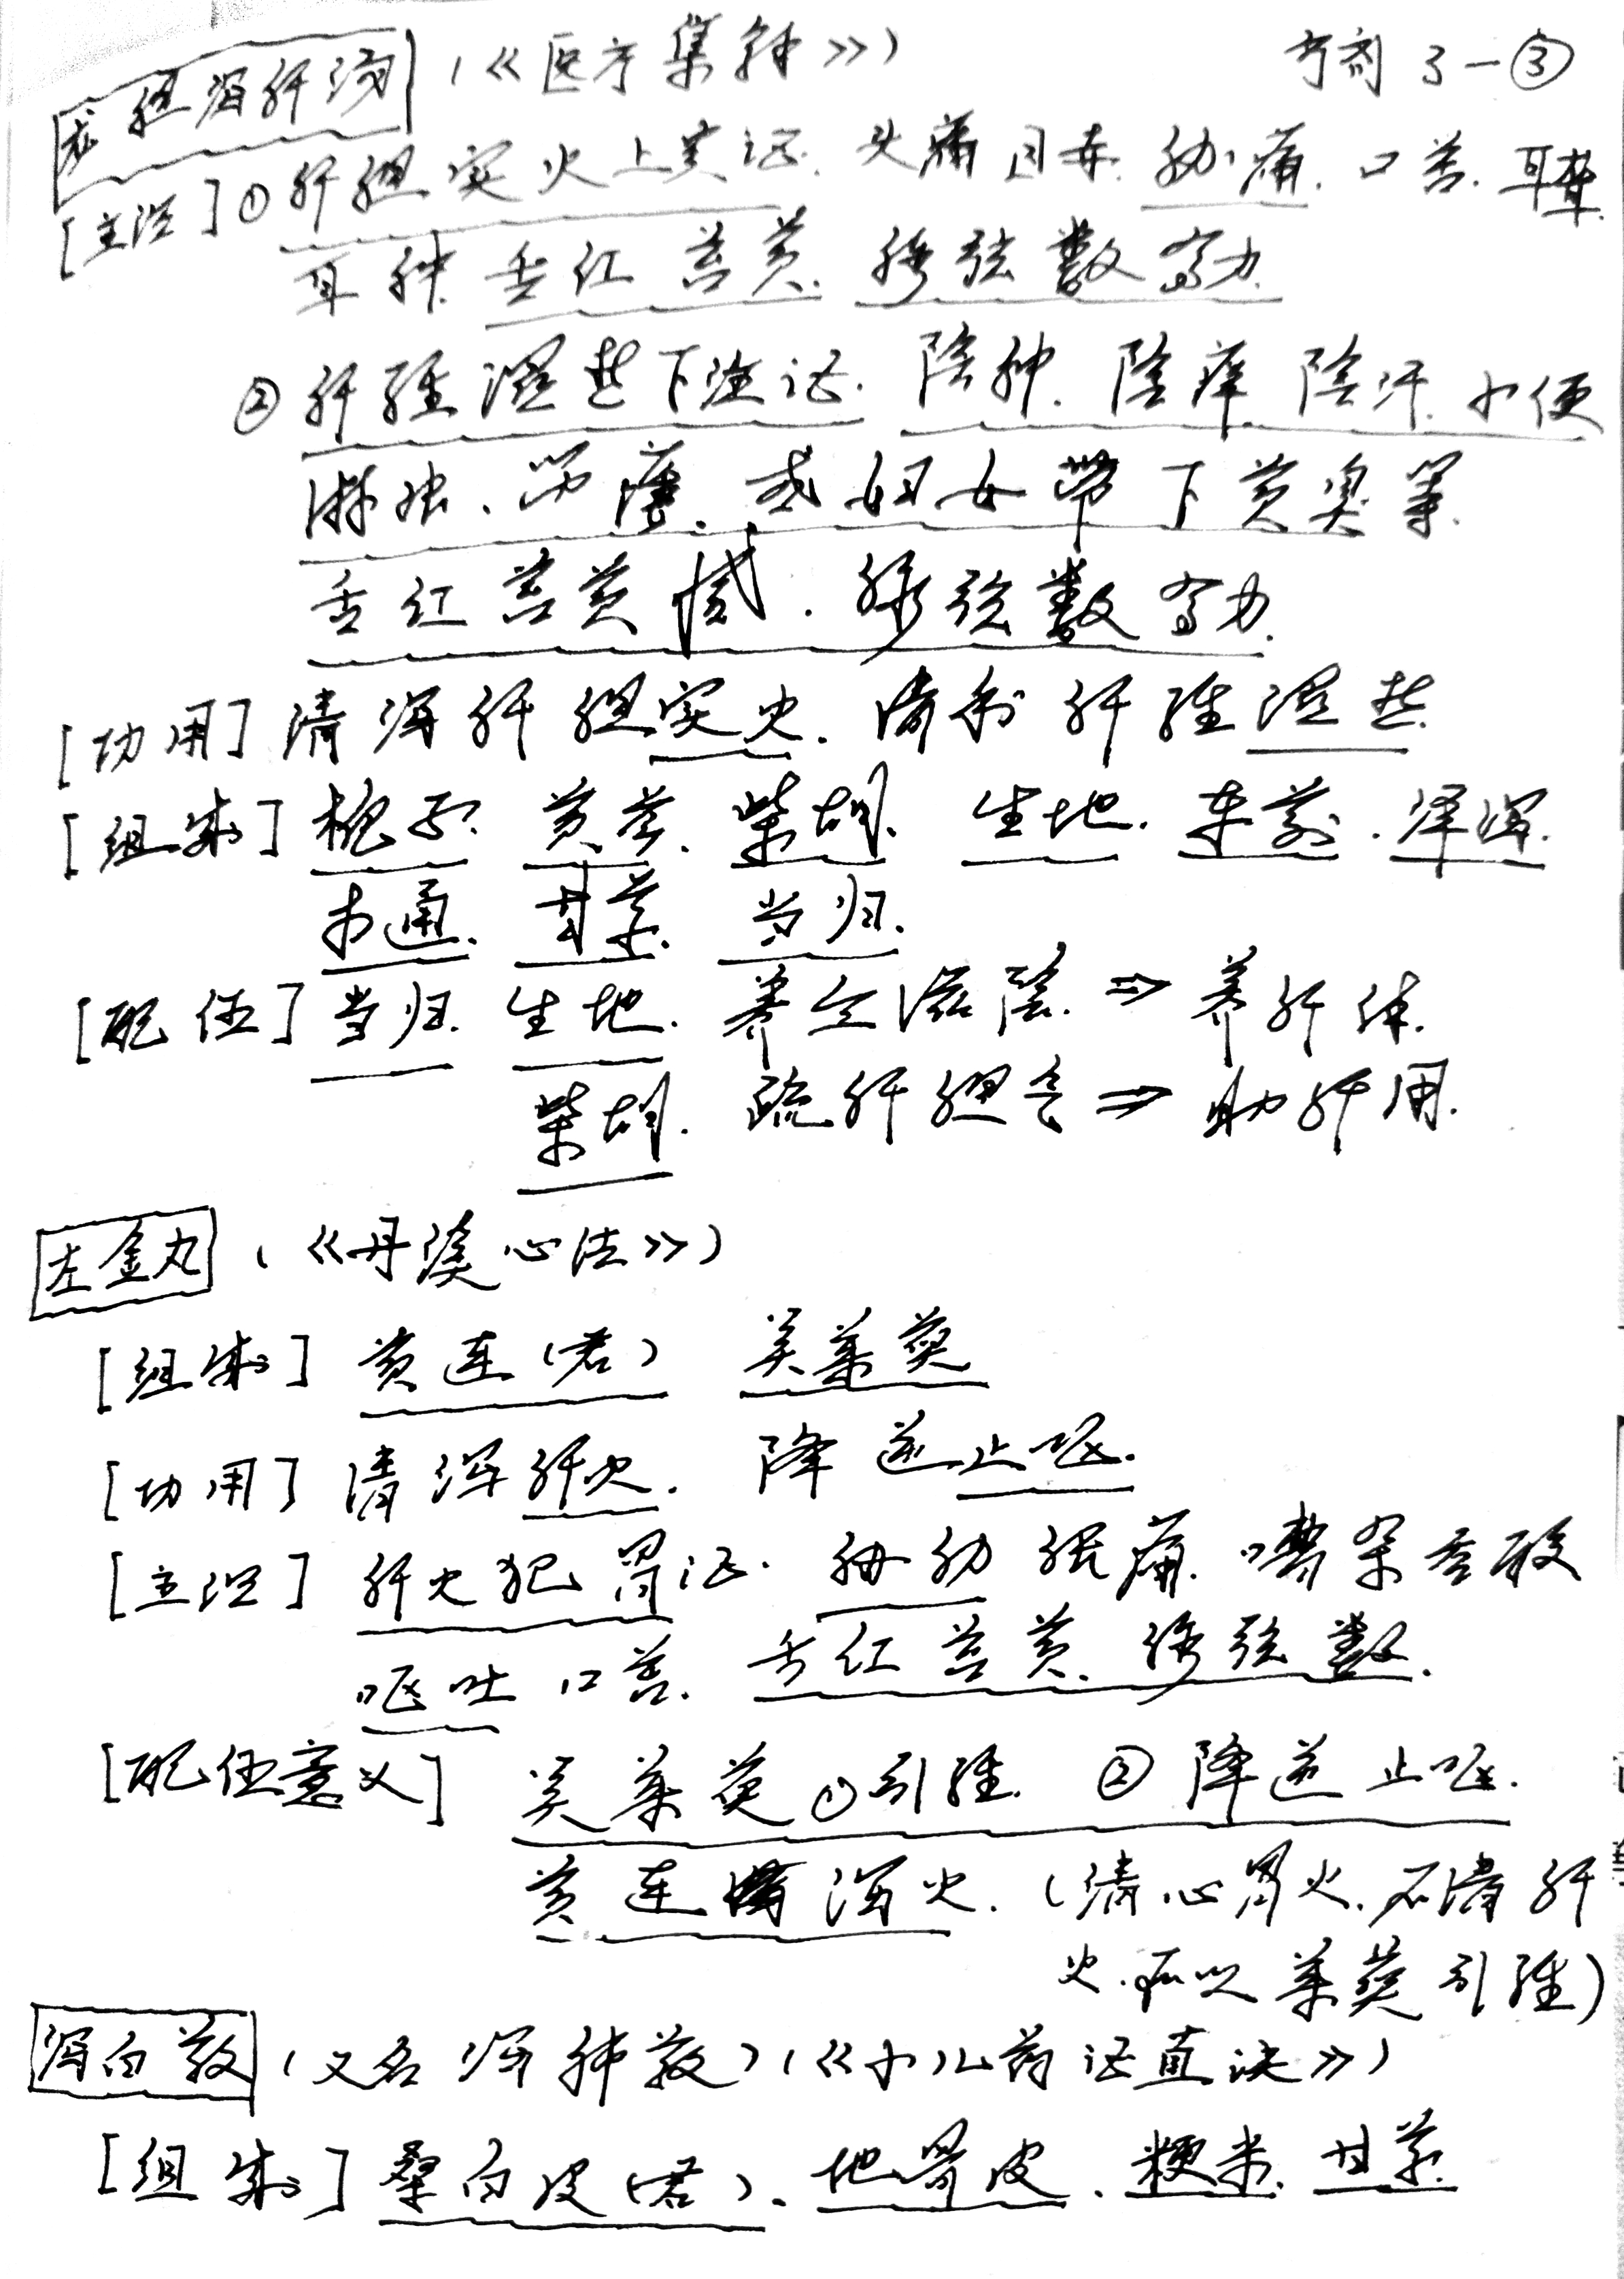 龙胆泻肝汤(《医方集解》) 方剂 3-③
[主治]①肝胆实火上炎证.头痛目赤.胁痛.口苦.耳聋.
耳肿.舌红苔黄.脉弦数有力.
②肝经湿热下注证.阴肿.阴痒.阴汗.小便
淋浊、或妇女带下黄臭等.
舌红苔黄腻.脉弦数有力.
[功用]清泻肝胆实火.清利肝经湿热.
[组成]栀子.黄芩.柴胡.生地.车前.泽泻.
木通.甘草.当归.
[配伍]当归.生地.养血滋阴.⇒养肝体.
柴胡.疏肝胆气⇒助肝用.
左金丸(《丹溪心法》)
[组成]黄连(君) 吴茱萸
[功用]清泻肝火.降逆止呕.
[主治]肝火犯胃证.胁肋胀痛.嘈杂吞酸
呕吐口苦.舌红苔黄.脉弦数.
[配伍意义]吴茱萸①引经.②降逆止呕.
黄连清泻火.(清心胃火.不清肝
火.所以茱萸引经)
泻白散(又名泻肺散)(《小儿药证直诀》)
[组成]桑白皮(君)、地骨皮、粳米.甘草.